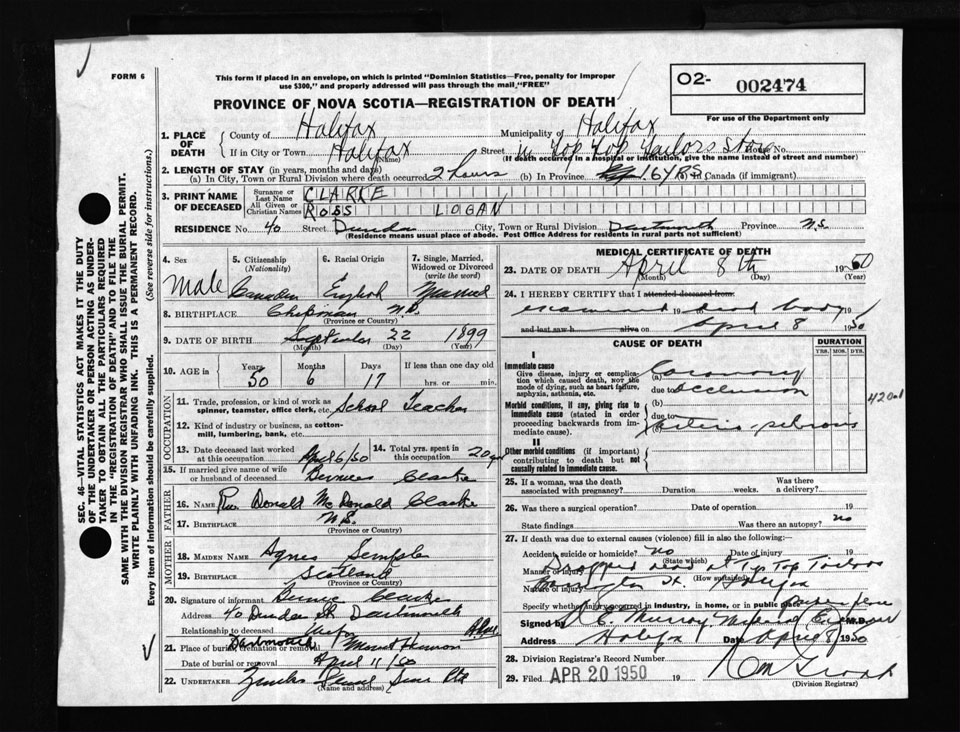 FORM 6
This form if placed in an envelope, on which is printed "Dominion Statistics—Free, penalty for improper
use $300," and properly addressed will pass through the mail "FREE"
O2- 002474
For use of the Department only
PROVINCE OF NOVA SCOTIA—REGISTRATION OF DEATH
1. PLACE OF DEATH
County of Halifax Municipality of Halifax
If in City or Town Halifax Street in Tip Top Tailors Store House No.
(Name) (If death occurred in a hospital or institution, give the name instead of street and number)
2. LENGTH OF STAY (in years, months and days)
(a) In City, Town or Rural Division where death occurred 2 hours (b) In Province 16 YRS Canada (if immigrant)
3. PRINT NAME OF DECEASED
Surname or Last Name CLARKE
All Given or Christian Names ROSS LOGAN
RESIDENCE No. 40 Street Dundas City, Town or Rural Division Dartmouth Province N.S.
(Residence means usual place of abode. Post Office Address for residents in rural parts not sufficient)
4. Sex Male
5. Citizenship (Nationality) Canadian
6. Racial Origin English
7. Single, Married, Widowed or Divorced (write the word) Married
8. BIRTHPLACE Chipman N.B.
(Province or Country)
9. DATE OF BIRTH September 22 1899
(Month) (Day) (Year)
10. AGE in Years 50 Months 6 Days 17 If less than one day old hrs. or min.
OCCUPATION
11. Trade, profession, or kind of work as spinner, teamster, office clerk, etc. School Teacher
12. Kind of industry or business, as cotton-mill, lumbering, bank, etc.
13. Date deceased last worked at this occupation April 6/50
14. Total yrs. spent in this occupation 20 yrs
15. If married give name of wife or husband of deceased Clarke
FATHER
16. NAME Donald McDonald Clarke
17. BIRTHPLACE N.S.
(Province or Country)
MOTHER
18. MAIDEN NAME Agnes Semple
19. BIRTHPLACE Scotland
(Province or Country)
20. Signature of informant Bernice Clarke
Address 40 Dundas St. Dartmouth
Relationship to deceased Wife
21. Place of burial, cremation or removal Dartmouth Mount Hermon
Date of burial or removal April 11/50
22. UNDERTAKER
(Name and address)
MEDICAL CERTIFICATE OF DEATH
23. DATE OF DEATH April 8th 1950
(Month) (Day) (Year)
24. I HEREBY CERTIFY that I attended deceased from
examined dead body
and last saw h alive on April 8 1950
CAUSE OF DEATH
DURATION
YRS. MOS. DYS.
I
Immediate cause
Give disease, injury or complication which caused death, NOT the mode of dying, such as heart failure, asphyxia, asthenia, etc.
(a) Coronary
due to Occlusion
Morbid conditions, if any, giving rise to immediate cause (stated in order proceeding backwards from immediate cause).
(b)
due to
Arterio-sclerosis
420
II
Other morbid conditions (if important) contributing to death but not causally related to immediate cause.
25. If a woman, was the death associated with pregnancy? Duration weeks. Was there a delivery?
26. Was there a surgical operation? Date of operation 19
State findings Was there an autopsy? No
27. If death was due to external causes (violence) fill in also the following:—
Accident, suicide or homicide? No Date of injury 19
(State which)
Manner of injury Dropped dead at Tip Top Tailors
(How sustained)
Nature of injury Barrington St. Halifax
Specify whether injury occurred in industry, in home, or in public place
Signed by M.D.
Address Halifax Date April 8 1950
28. Division Registrar's Record Number
29. Filed APR 20 1950 19
(Division Registrar)
SEC. 46—VITAL STATISTICS ACT MAKES IT THE DUTY
OF THE UNDERTAKER OR PERSON ACTING AS UNDER-
TAKER TO OBTAIN ALL THE PARTICULARS REQUIRED
IN THE "REGISTRATION OF DEATH" AND TO FILE THE
SAME WITH THE DIVISION REGISTRAR WHO SHALL ISSUE THE BURIAL PERMIT.
WRITE PLAINLY WITH UNFADING INK. THIS IS A PERMANENT RECORD.
Every item of information should be carefully supplied. (See reverse side for instructions.)